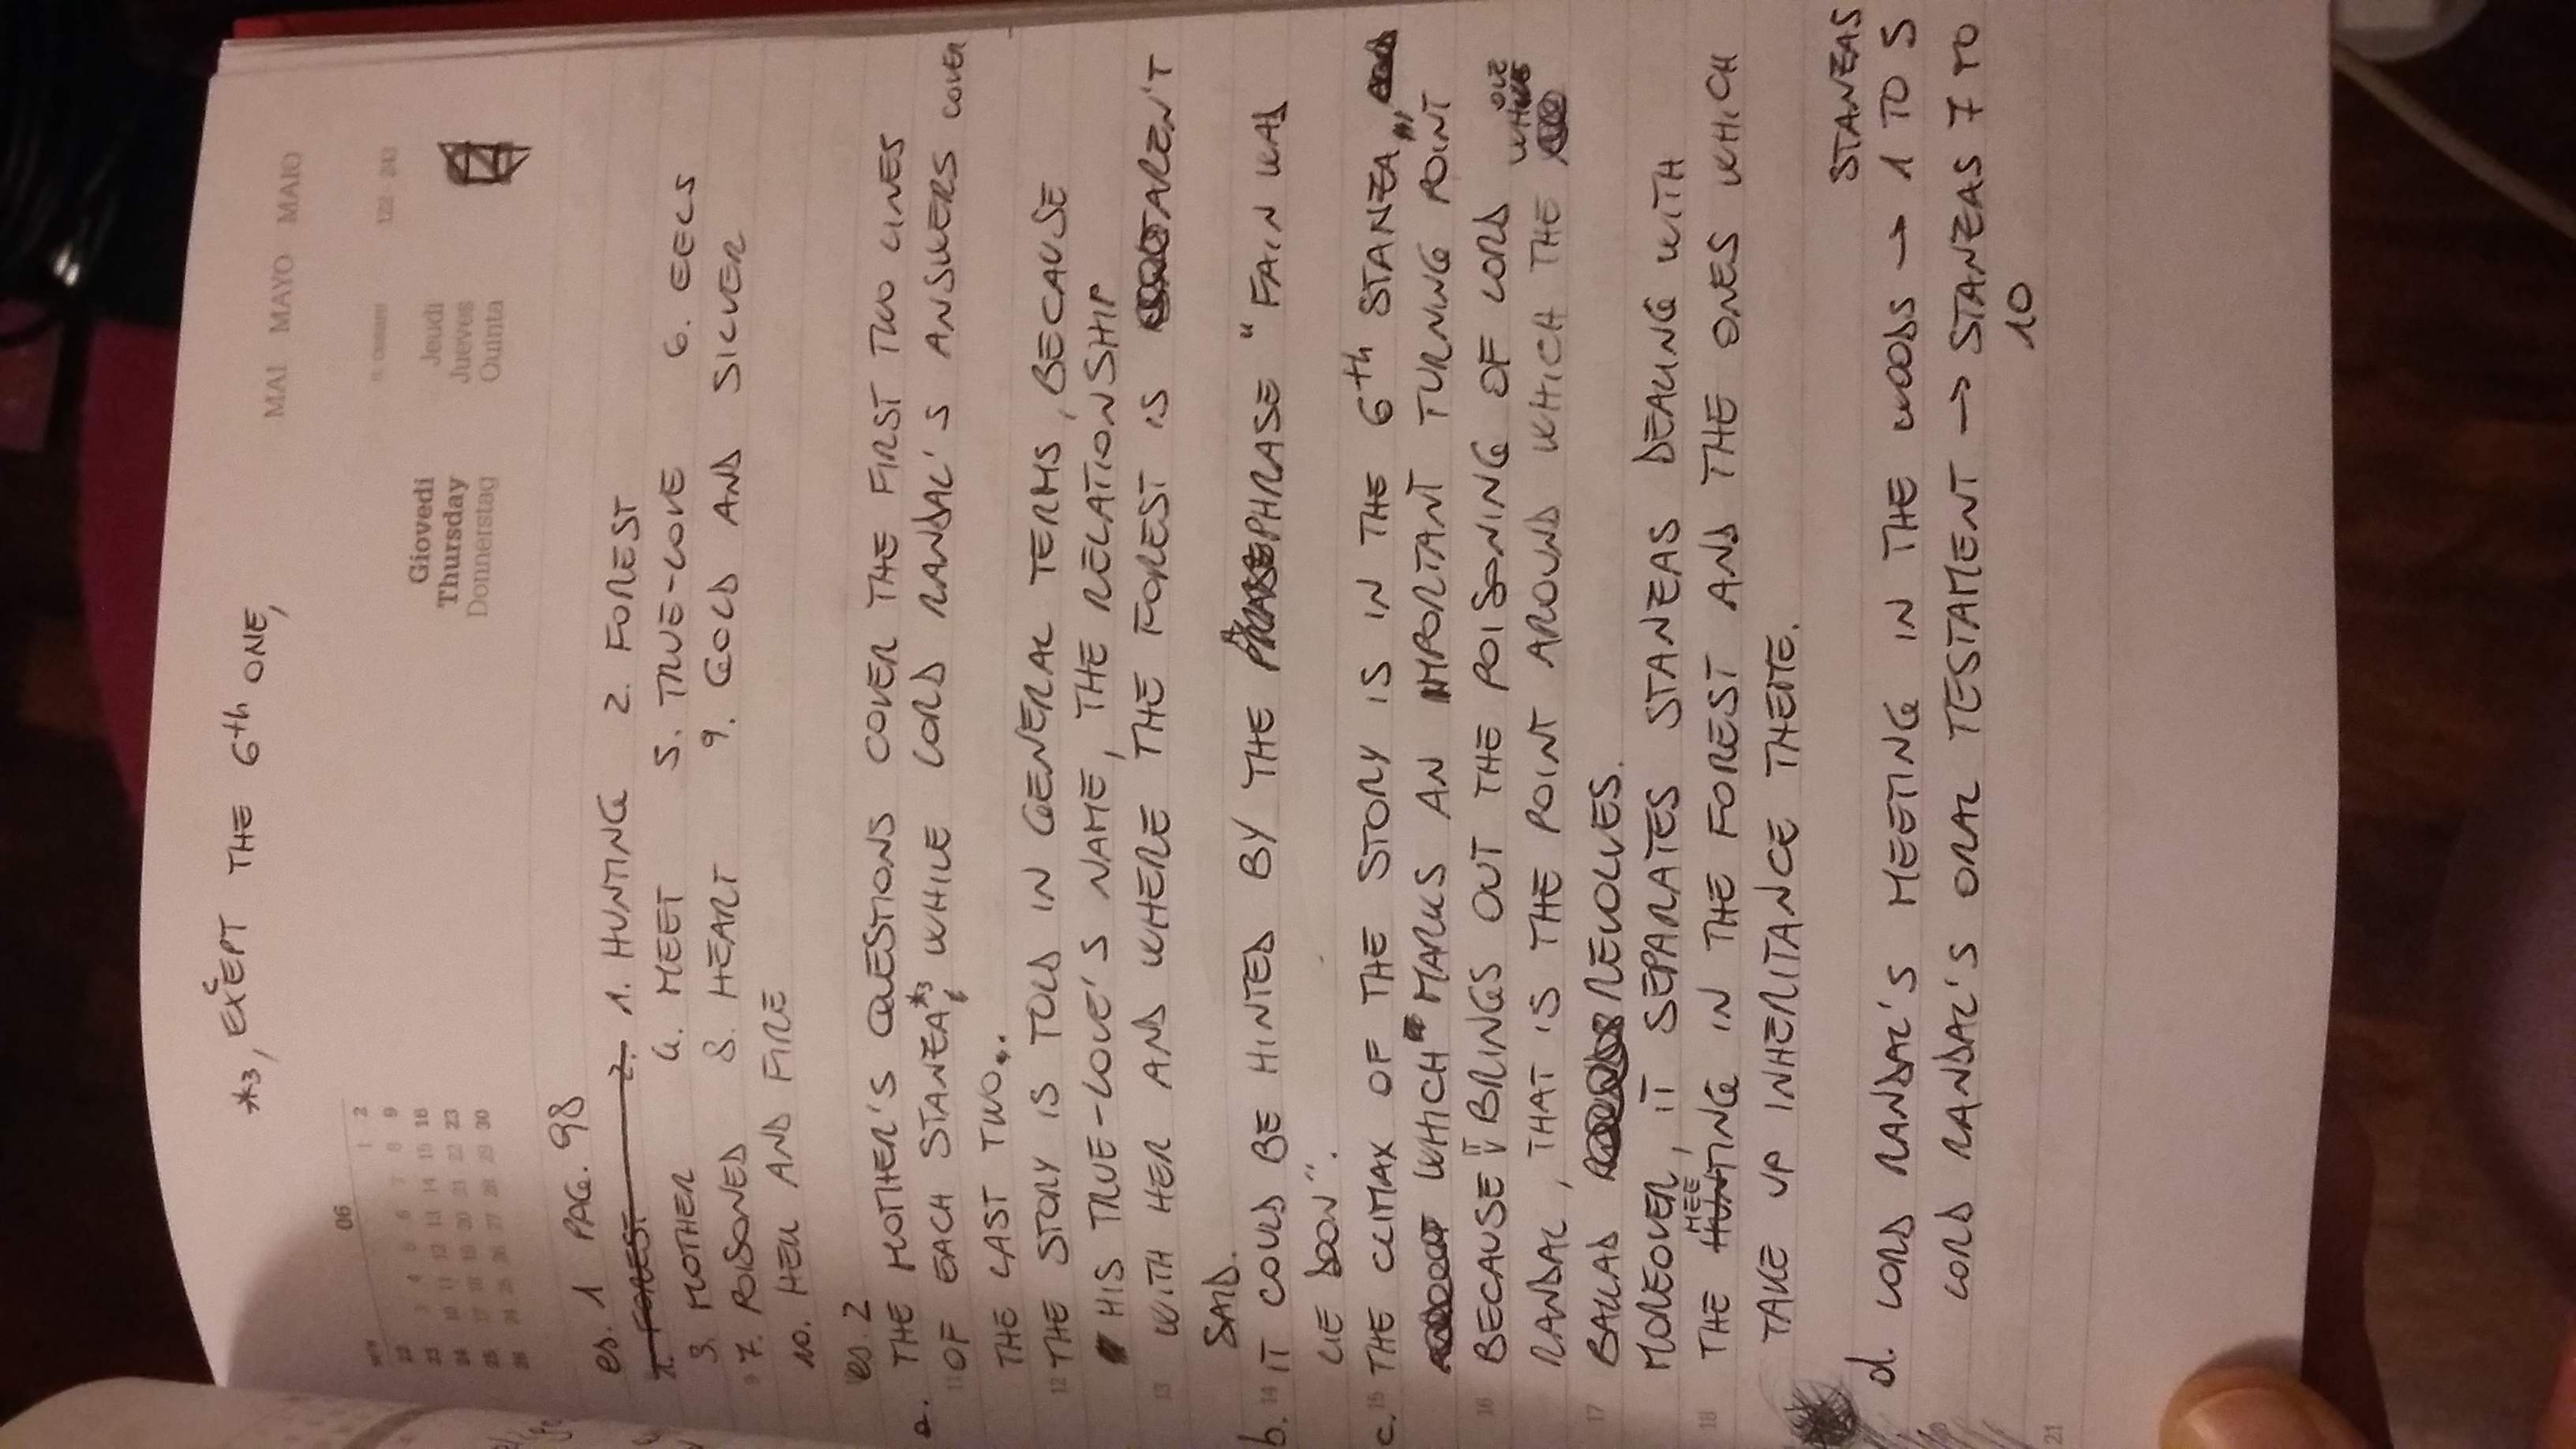 *3, EXCEPT THE 6th ONE,
MAI MAYO MAIO
06
Giovedì Jeudi
Thursday Jueves
Donnerstag Quinta
122 - 243
1 2
7 8 9
14 15 16
21 22 23
28 29 30
es. 1 PAG. 98
1. FOREST 2. 1. HUNTING 2. FOREST
3. MOTHER 4. MEET 5. TRUE-LOVE 6. EELS
7. POISONED 8. HEART 9. GOLD AND SILVER
10. HELL AND FIRE
es. 2
a. THE MOTHER'S QUESTIONS COVER THE FIRST TWO LINES
11 OF EACH STANZA*3, WHILE LORD RANDAL'S ANSWERS COVER
THE LAST TWO.
12 THE STORY IS TOLD IN GENERAL TERMS, BECAUSE
HIS TRUE-LOVE'S NAME, THE RELATIONSHIP
13 WITH HER AND WHERE THE FOREST IS AREN'T
SAID.
b. 14 IT COULD BE HINTED BY THE PHRASE "FAIN WALD
LIE DOON".
c. 15 THE CLIMAX OF THE STORY IS IN THE 6th STANZA,
WHICH MARKS AN IMPORTANT TURNING POINT
16 BECAUSE IT BRINGS OUT THE POISONING OF LORD
RANDAL, THAT IS THE POINT AROUND WHICH THE WHOLE
17 BALLAD REVOLVES.
MOREOVER, IT SEPARATES STANZAS DEALING WITH
18 THE MEETING IN THE FOREST AND THE ONES WHICH
TAKE UP INHERITANCE THEME.
d. LORD RANDAL'S MEETING IN THE WOODS → STANZAS 1 TO 5
LORD RANDAL'S ORAL TESTAMENT → STANZAS 7 TO
10
21